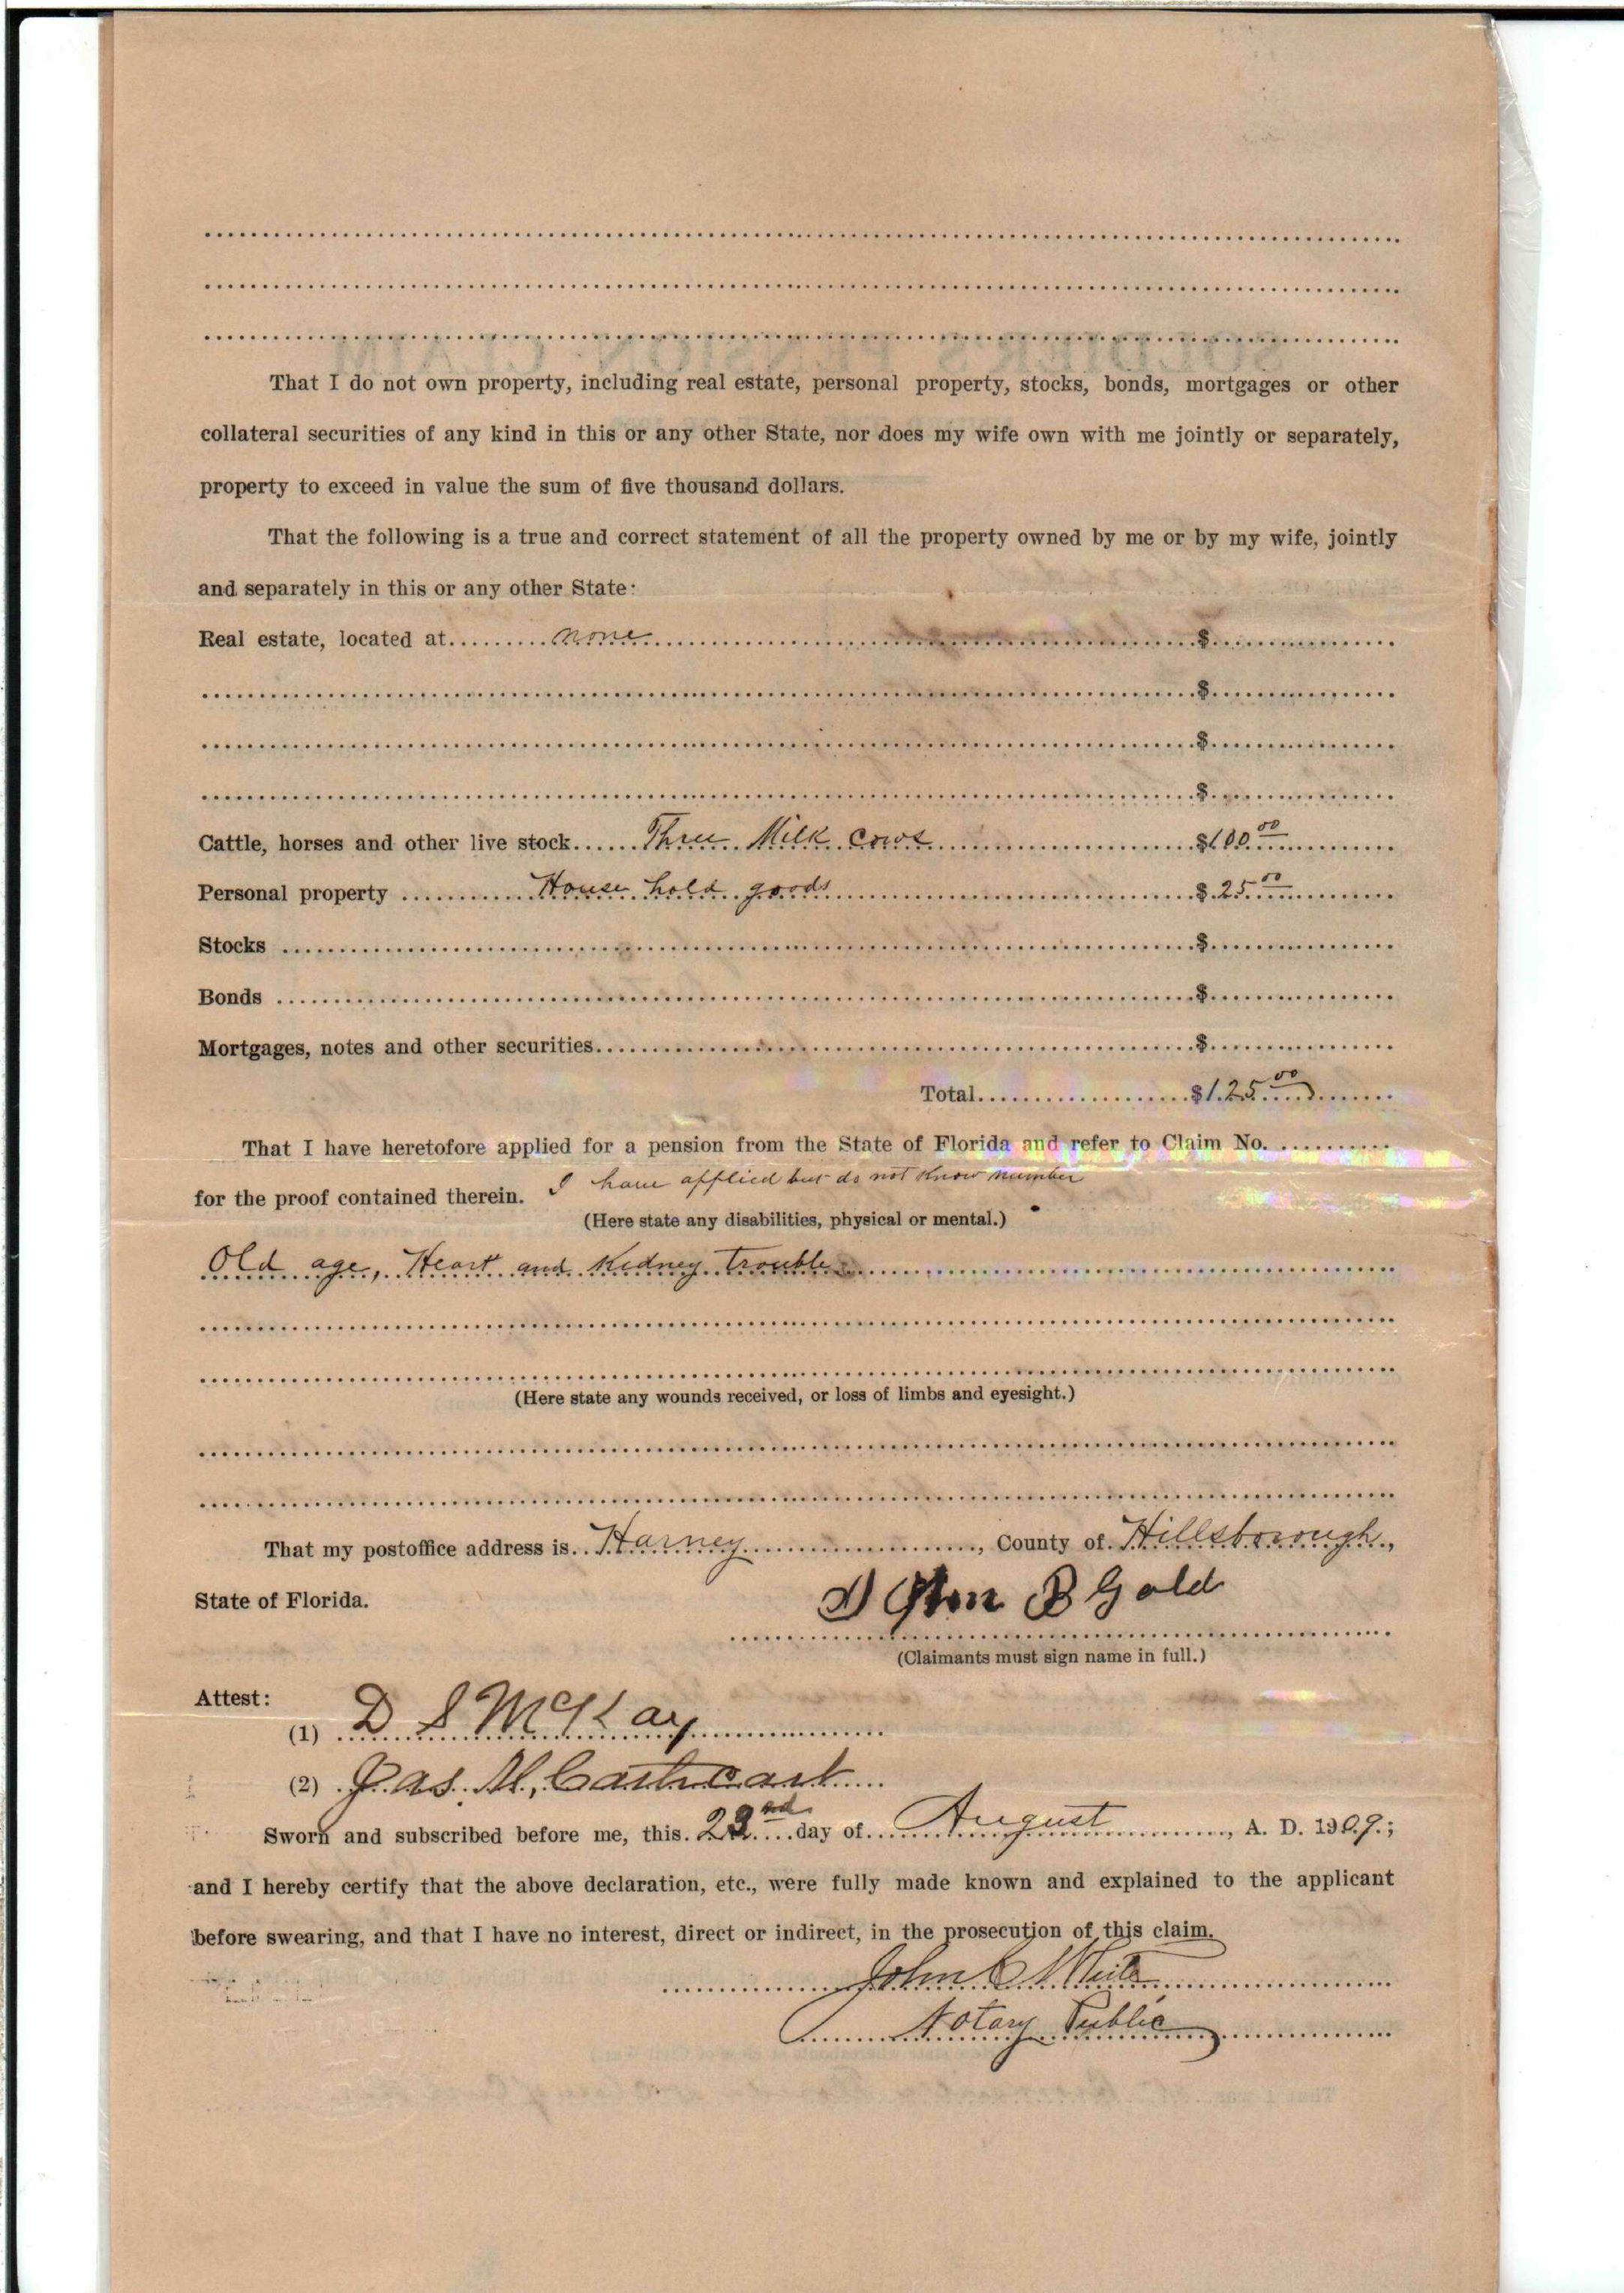 That I do not own property, including real estate, personal property, stocks, bonds, mortgages or other
collateral securities of any kind in this or any other State, nor does my wife own with me jointly or separately,
property to exceed in value the sum of five thousand dollars.
That the following is a true and correct statement of all the property owned by me or by my wife, jointly
and separately in this or any other State:
Real estate, located at none $
$
$
$
Cattle, horses and other live stock Three Milk cows $100.00
Personal property House hold goods $25.00
Stocks $
Bonds $
Mortgages, notes and other securities $
Total $125.00
That I have heretofore applied for a pension from the State of Florida and refer to Claim No.
for the proof contained therein. I have applied but do not know number
(Here state any disabilities, physical or mental.)
Old age, Heart and Kidney trouble
(Here state any wounds received, or loss of limbs and eyesight.)
That my postoffice address is Harney, County of Hillsborough,
State of Florida. B Gold
(Claimants must sign name in full.)
Attest:
(1) D S McKay
(2) Jas. M. Cathcart
Sworn and subscribed before me, this day of August, A. D. 1909.;
and I hereby certify that the above declaration, etc., were fully made known and explained to the applicant
before swearing, and that I have no interest, direct or indirect, in the prosecution of this claim.
John C White
Notary Public